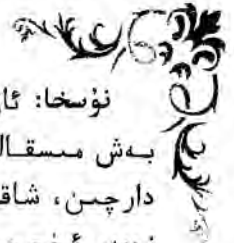 نۇسخا: ئا
بەش مىسقال
دارچىن، شاقـ